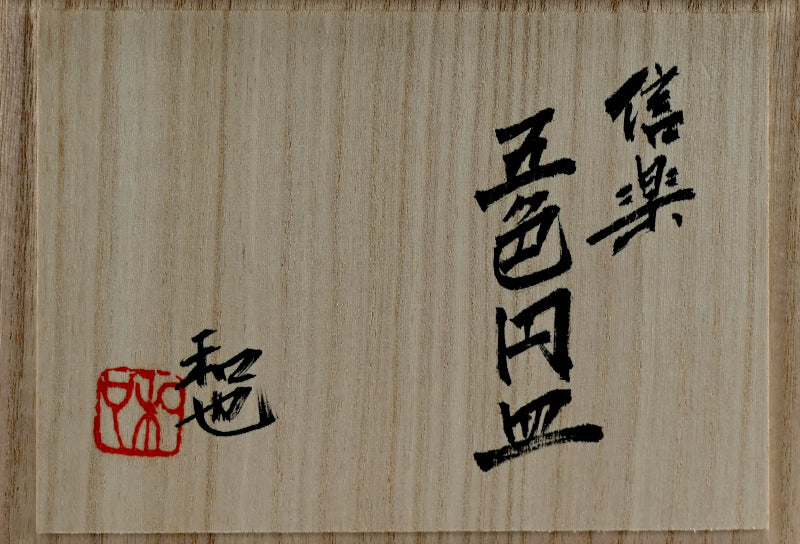 信楽
五色円皿
和也